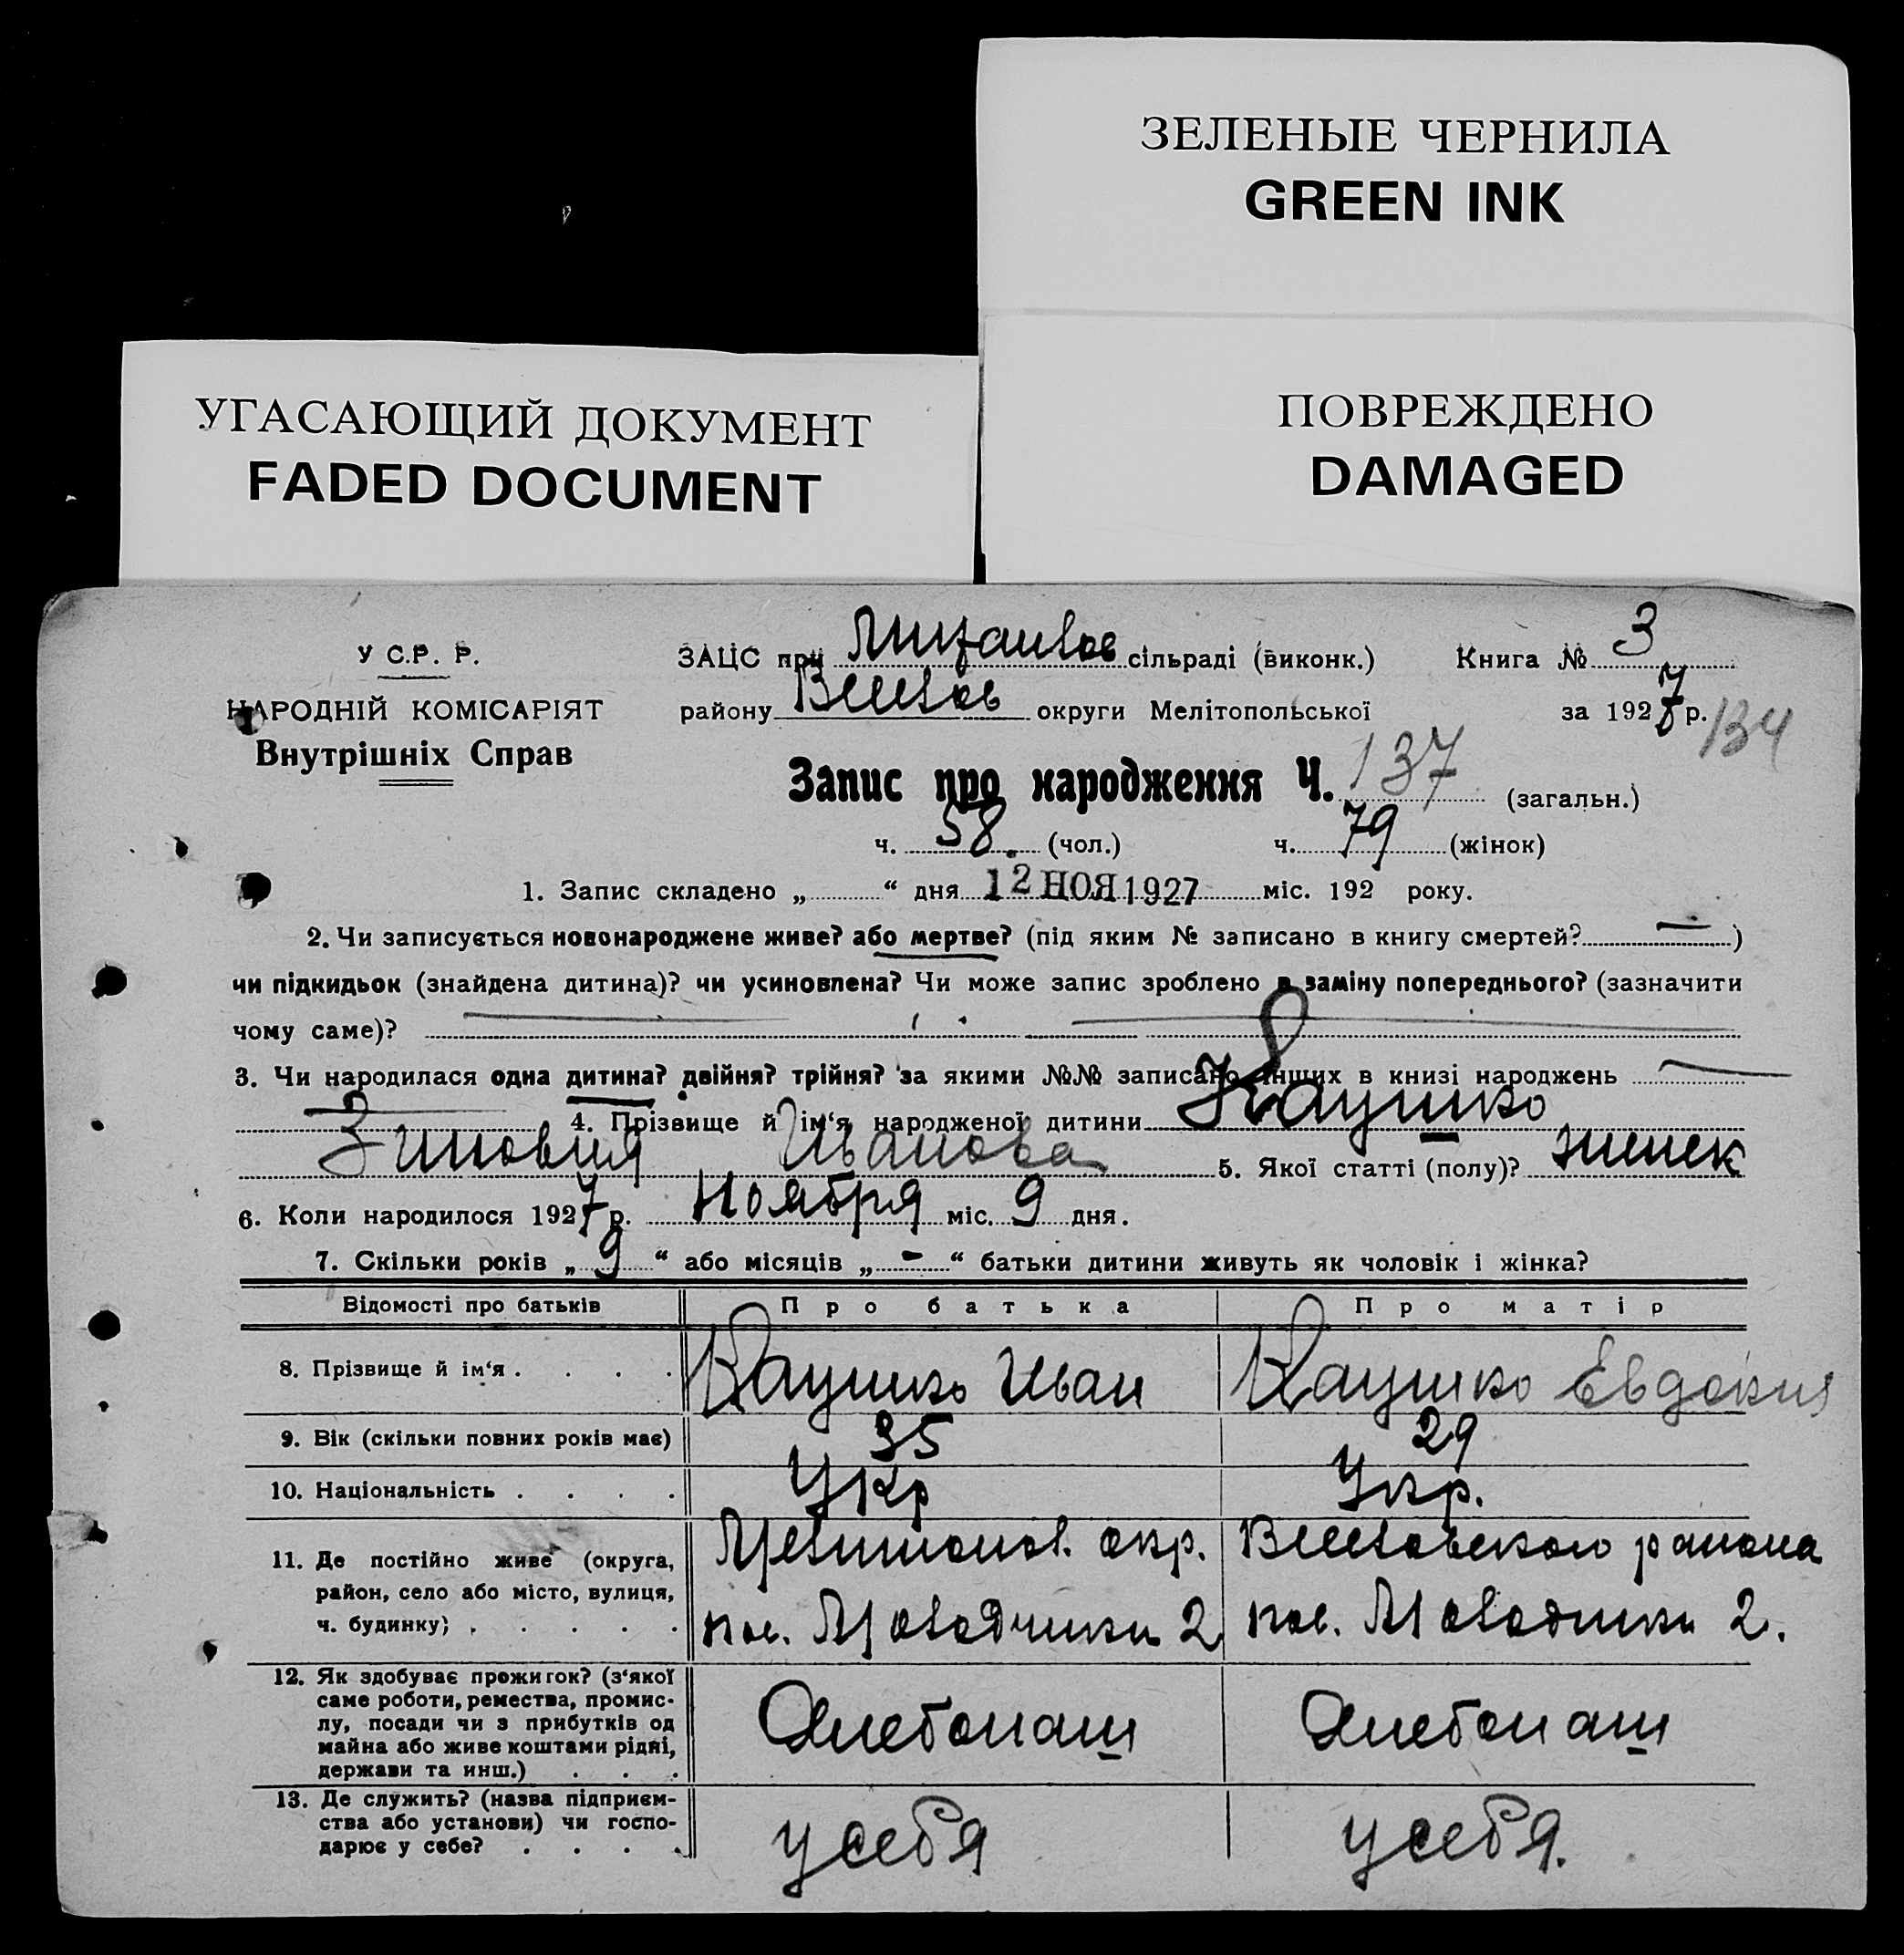 ЗЕЛЕНЫЕ ЧЕРНИЛА
GREEN INK
УГАСАЮЩИЙ ДОКУМЕНТ
FADED DOCUMENT
ПОВРЕЖДЕНО
DAMAGED
У С.Р. Р.
НАРОДНІЙ КОМІСАРІЯТ
Внутрішніх Справ
ЗАЦС при сільраді (виконк.) Книга № 3
району округи Мелітопольської за 1927 р. 134
Запис про народження Ч. 137 (загальн.)
ч. 58. (чол.) ч. 79 (жінок)
1. Запис складено „ “ дня 12 НОЯ 1927 міс. 192 року.
2. Чи записується новонароджене живе? або мертве? (під яким № записано в книгу смертей? — )
чи підкидьок (знайдена дитина)? чи усиновлена? Чи може запис зроблено в заміну попереднього? (зазначити
чому саме)?
3. Чи народилася одна дитина? двійня? трійня? за якими №№ записано інших в книзі народжень
4. Прізвище й ім‘я народженої дитини Каушко
Зиновия Иванова 5. Якої статті (полу)? женск
6. Коли народилося 1927 р. Ноября міс. 9 дня.
7. Скільки років „ 9 “ або місяців „ - “ батьки дитини живуть як чоловік і жінка?
Відомості про батьків Про батька Про матір
8. Прізвище й ім‘я . . . . Каушко Иван Каушко Евдокия
9. Вік (скільки повних років має) 35 29
10. Національність . . . . Укр Укр.
11. Де постійно живе (округа, окр. района
район, село або місто, вулиця,
ч. будинку; . . . . . 2 2.
12. Як здобуває прожиток? (з‘якої
саме роботи, ремества, промис-
лу, посади чи з прибутків од Хлебопаш Хлебопаш
майна або живе коштами рідні,
держави та инш.) . . .
13. Де служить? (назва підприєм-
ства або установи) чи госпо- у себя у себя.
дарює у себе? . . . .